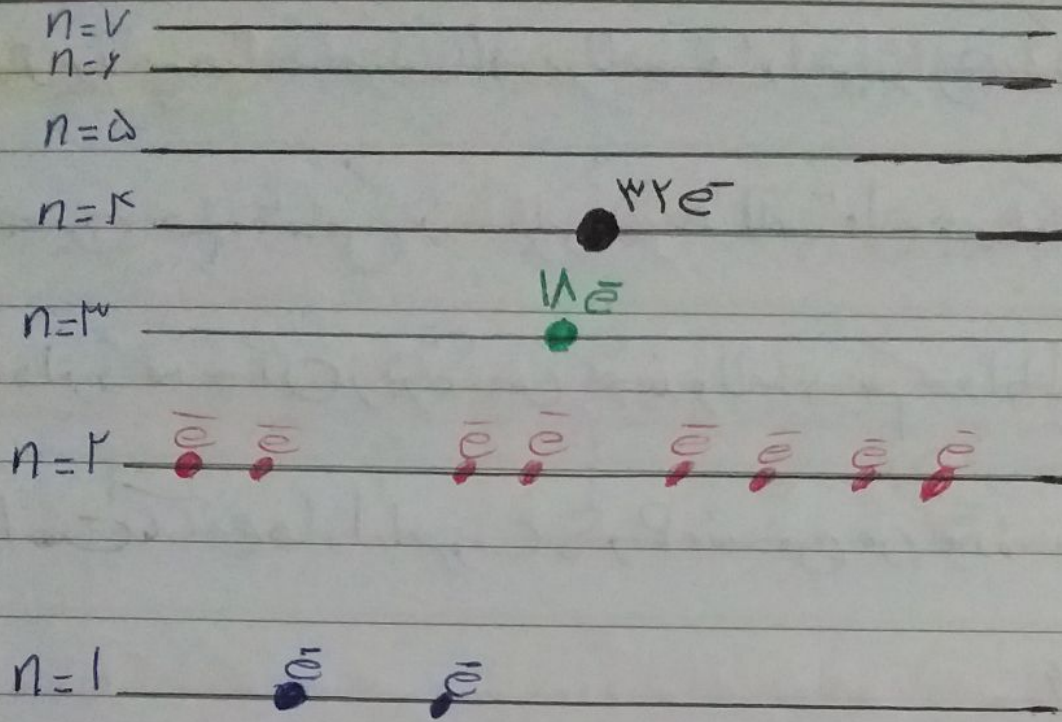 n=۷
n=۶
n=۵
n=۴ ۳۲e⁻
n=۳ ۱۸e⁻
n=۲ e⁻ e⁻ e⁻ e⁻ e⁻ e⁻ e⁻ e⁻
n=۱ e⁻ e⁻